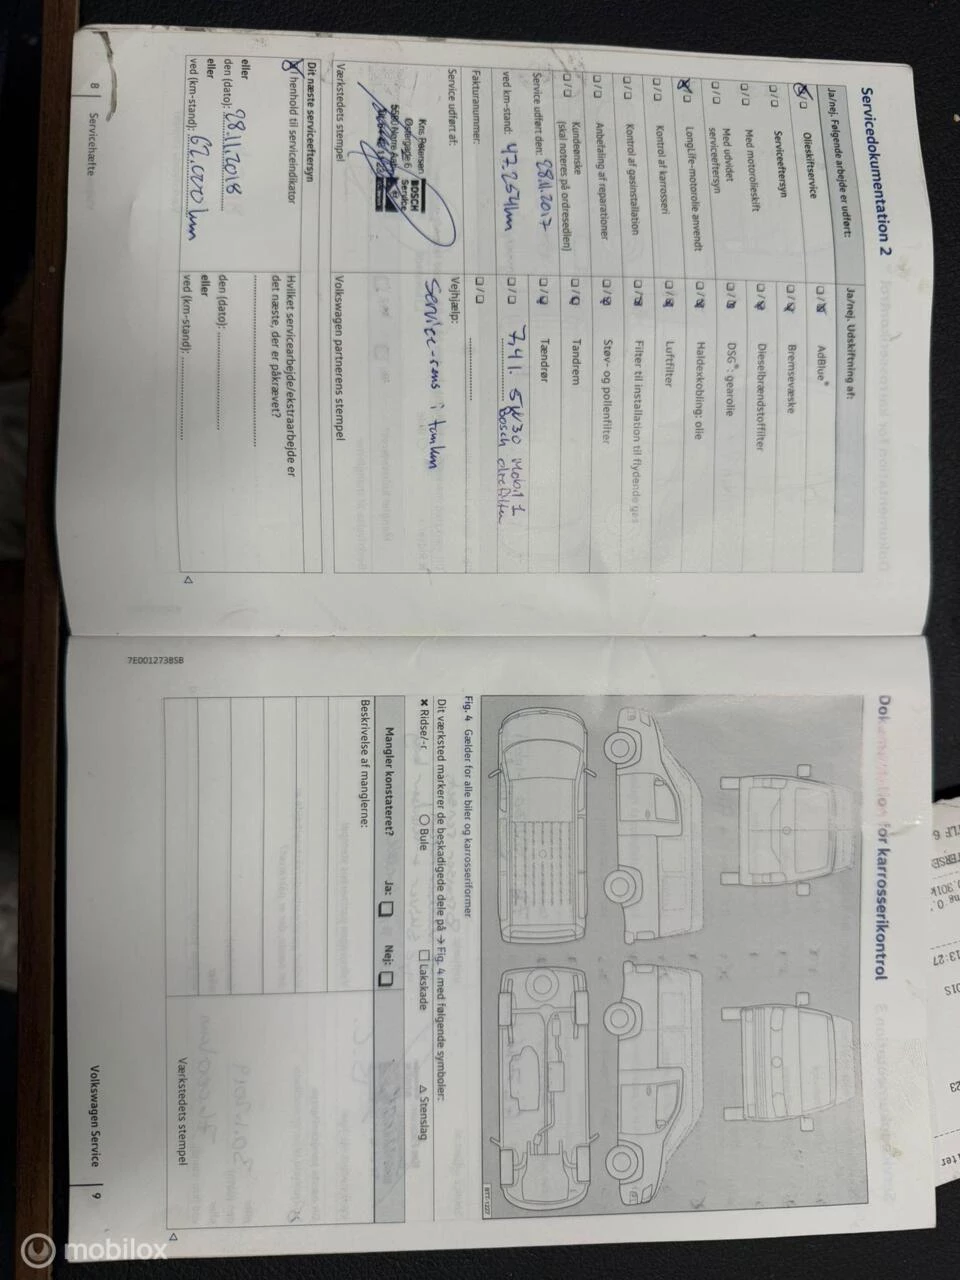 Servicedokumentation 2
Ja/nej. Følgende arbejde er udført:
Olieskiftservice
Serviceeftersyn
Med motorolieskift
Med udvidet
serviceeftersyn
LongLife-motorolie anvendt
Kontrol af karrosseri
Kontrol af gasinstallation
Anbefaling af reparationer
Kundeønske
(skal noteres på ordresedlen)
Service udført den: 28.11.2017
ved km-stand: 47.254km
Fakturanummer:
Service udført af:
Kns Petersen
Østergade 6
BOSCH
Service
Værkstedets stempel
Dit næste serviceeftersyn
I henhold til serviceindikator
eller
den (dato): 28.11.2018
eller
ved (km-stand): 62.000km
Ja/nej. Udskiftning af:
AdBlue®
Bremsevæske
Dieselbrændstoffilter
DSG®: gearolie
Haldexkobling: olie
Luftfilter
Filter til installation til flydende gas
Støv- og pollenfilter
Tandrem
Tændrør
7,4 l. 5W30 Mobil 1
Bosch oliefilter
Vejhjælp:
Service-rens i tanken
Volkswagen partnerens stempel
Hvilket servicearbejde/ekstraarbejde er
det næste, der er påkrævet?
den (dato):
eller
ved (km-stand):
8 Servicehæfte
7E0012738SB
Dokumentation for karrosserikontrol
BTT-1227
Fig. 4 Gælder for alle biler og karrosseriformer
Dit værksted markerer de beskadigede dele på → Fig. 4 med følgende symboler:
✖ Ridse/-r ○ Bule □ Lakskade △ Stenslag
Mangler konstateret? Ja: □ Nej: □
Beskrivelse af manglerne:
Værkstedets stempel
Volkswagen Service 9
13:27
mobilox